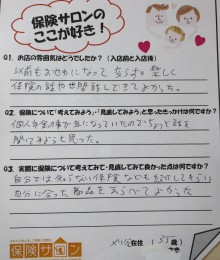 保険サロンの
ここが好き!
Q1. お店の雰囲気はどうでしたか?(入店前と入店後)
以前もお世話になって 楽しく
保険の話や世間話しできてよかった。
Q2. 保険について「考えてみよう」・「見直してみよう」と思ったきっかけは何ですか?
個人年金の事が気になっていたのでちょっと話を
聞いてみようと思った。
Q3. 実際に保険について考えてみて・見直してみて良かった点は何ですか?
自分では 保険なども
自分に合った商品を よかった
保険サロン
在住 (35 歳)